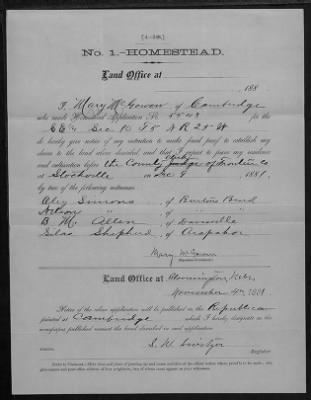 [4—348.]
No. 1.—HOMESTEAD.
Land Office at
188
I, Mary McGowen, of Cambridge
who made Homestead Application No. 5543 for the
Sec 10 T 5 N R 25 W
do hereby give notice of my intention to make final proof to establish my
claim to the land above described and that I expect to prove my residence
and cultivation before the County Judge of Frontier Co
at Stockville on Dec 9, 1881,
by two of the following witnesses:
Aley Simons, of Burtons Bend
Nelson " , of "
B. M. Allen, of Danville
Silas Shepherd, of Arapahoe
Mary McGowen
Land Office at Bloomington, Neb.
November 4th 1881
Notice of the above application will be published in the Republican
printed at Cambridge which I hereby designate as the
newspaper published nearest the land described in said application.
S. W. Switzer
Register